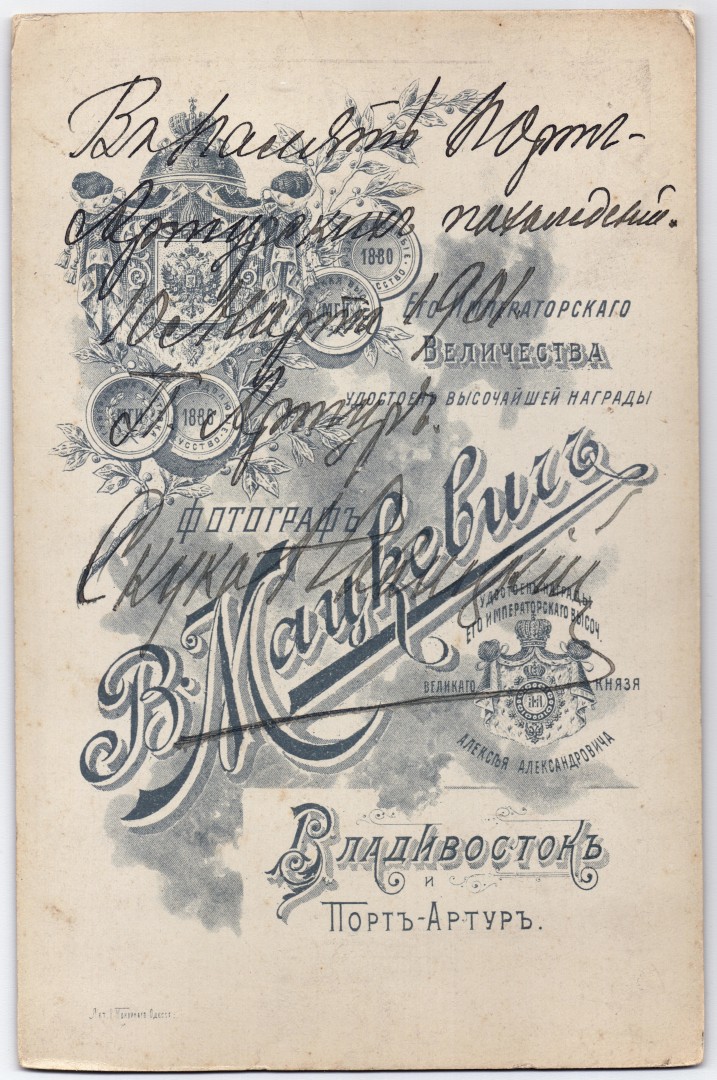 Въ память Портъ-
Артурскихъ похожденій.
10е Марта 1901
П. Артуръ.
1880
МГИ
Его Императорскаго
Величества
удостоенъ высочайшей награды
МГИ
1886
Фотографъ
В. Мацкевичъ
удостоенъ награды
его императорскаго высоч.
великаго князя
Алексѣя Александровича
Владивостокъ
и
Портъ-Артуръ.
Одесса